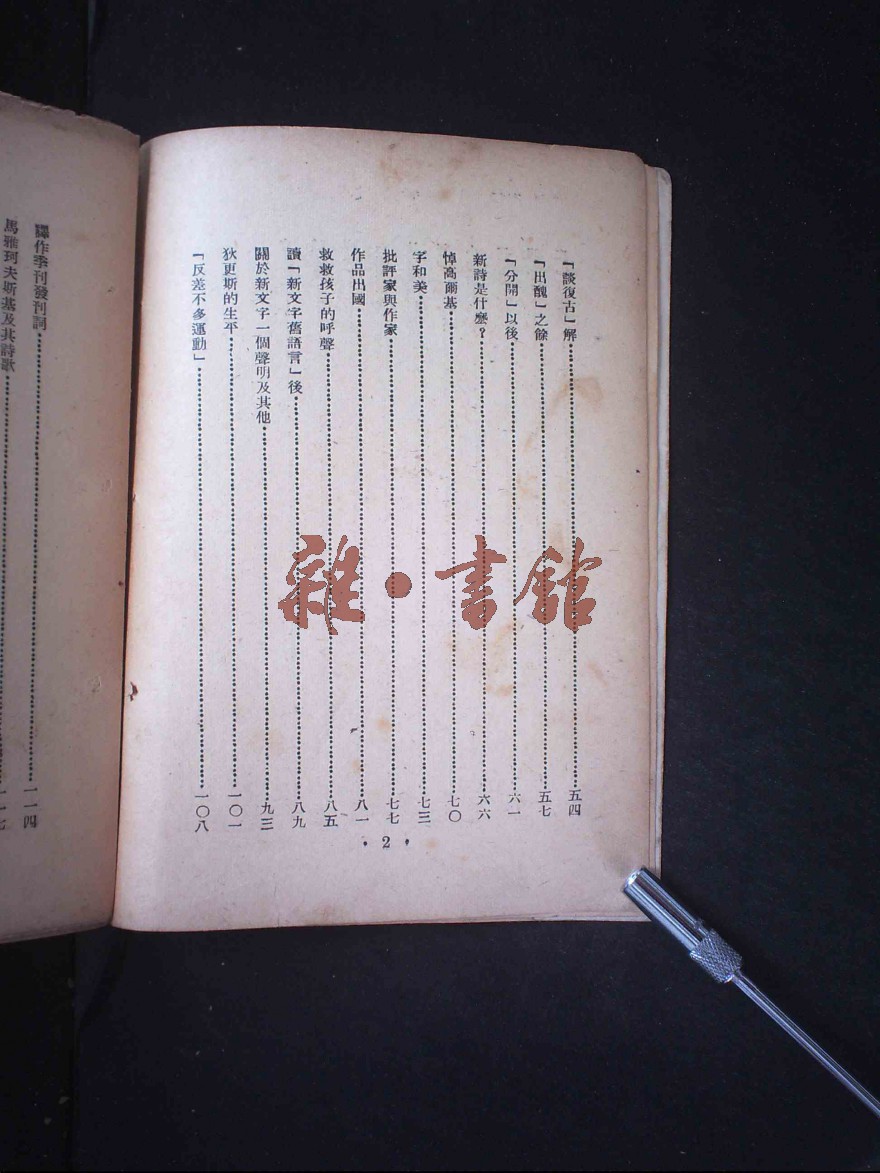 「談復古」解……五四
「出醜」之餘……五七
「分開」以後……六一
新詩是什麼？……六六
悼高爾基……七〇
字和美……七三
批評家與作家……七七
作品出國……八一
救救孩子的呼聲……八五
讀「新文字舊語言」後……八九
關於新文字一個聲明及其他……九三
狄更斯的生平……一〇一
「反差不多運動」……一〇八
· 2 ·
譯作季刊發刊詞……一一四
馬雅珂夫斯基及其詩歌……一一七
雜·書館